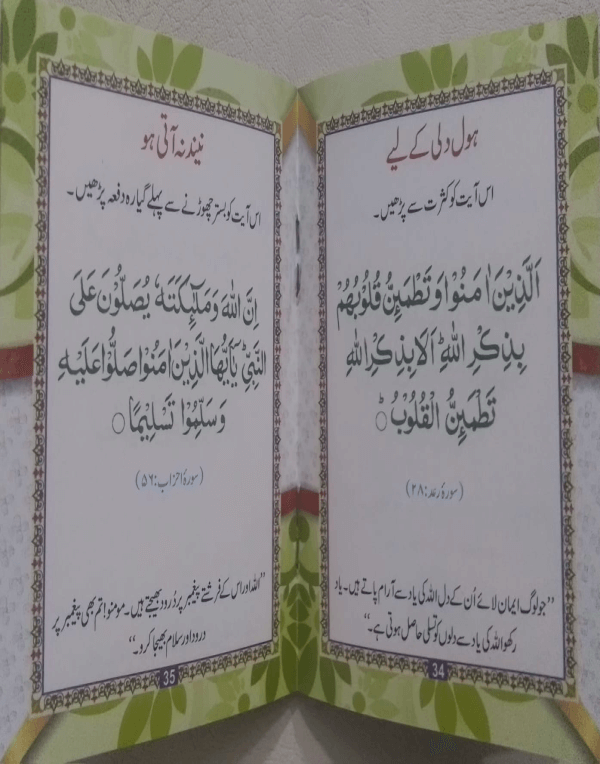 ہول دلی کے لیے
اس آیت کو کثرت سے پڑھیں۔
اَلَّذِیْنَ اٰمَنُوْا وَتَطْمَئِنُّ قُلُوْبُهُمْ
بِذِكْرِ اللّٰهِ ؕ اَلَا بِذِكْرِ اللّٰهِ
تَطْمَئِنُّ الْقُلُوْبُ ؕ
(سورۂ رعد: ۲۸)
’’جو لوگ ایمان لائے اُن کے دل اللہ کی یاد سے آرام پاتے ہیں۔ یاد
رکھو اللہ کی یاد سے دلوں کو تسلی حاصل ہوتی ہے۔‘‘
34
نیند نہ آتی ہو
اس آیت کو بستر چھوڑنے سے پہلے گیارہ دفعہ پڑھیں۔
اِنَّ اللّٰهَ وَمَلٰٓئِكَتَهٗ یُصَلُّوْنَ عَلَی
النَّبِیِّ ؕ یٰۤاَیُّهَا الَّذِیْنَ اٰمَنُوْا صَلُّوْا عَلَیْهِ
وَسَلِّمُوْا تَسْلِیْمًا ○
(سورۂ احزاب: ۵۶)
’’اللہ اور اس کے فرشتے پیغمبر پر دُرود بھیجتے ہیں۔ مومنو! تم بھی پیغمبر پر
درود اور سلام بھیجا کرو۔‘‘
35